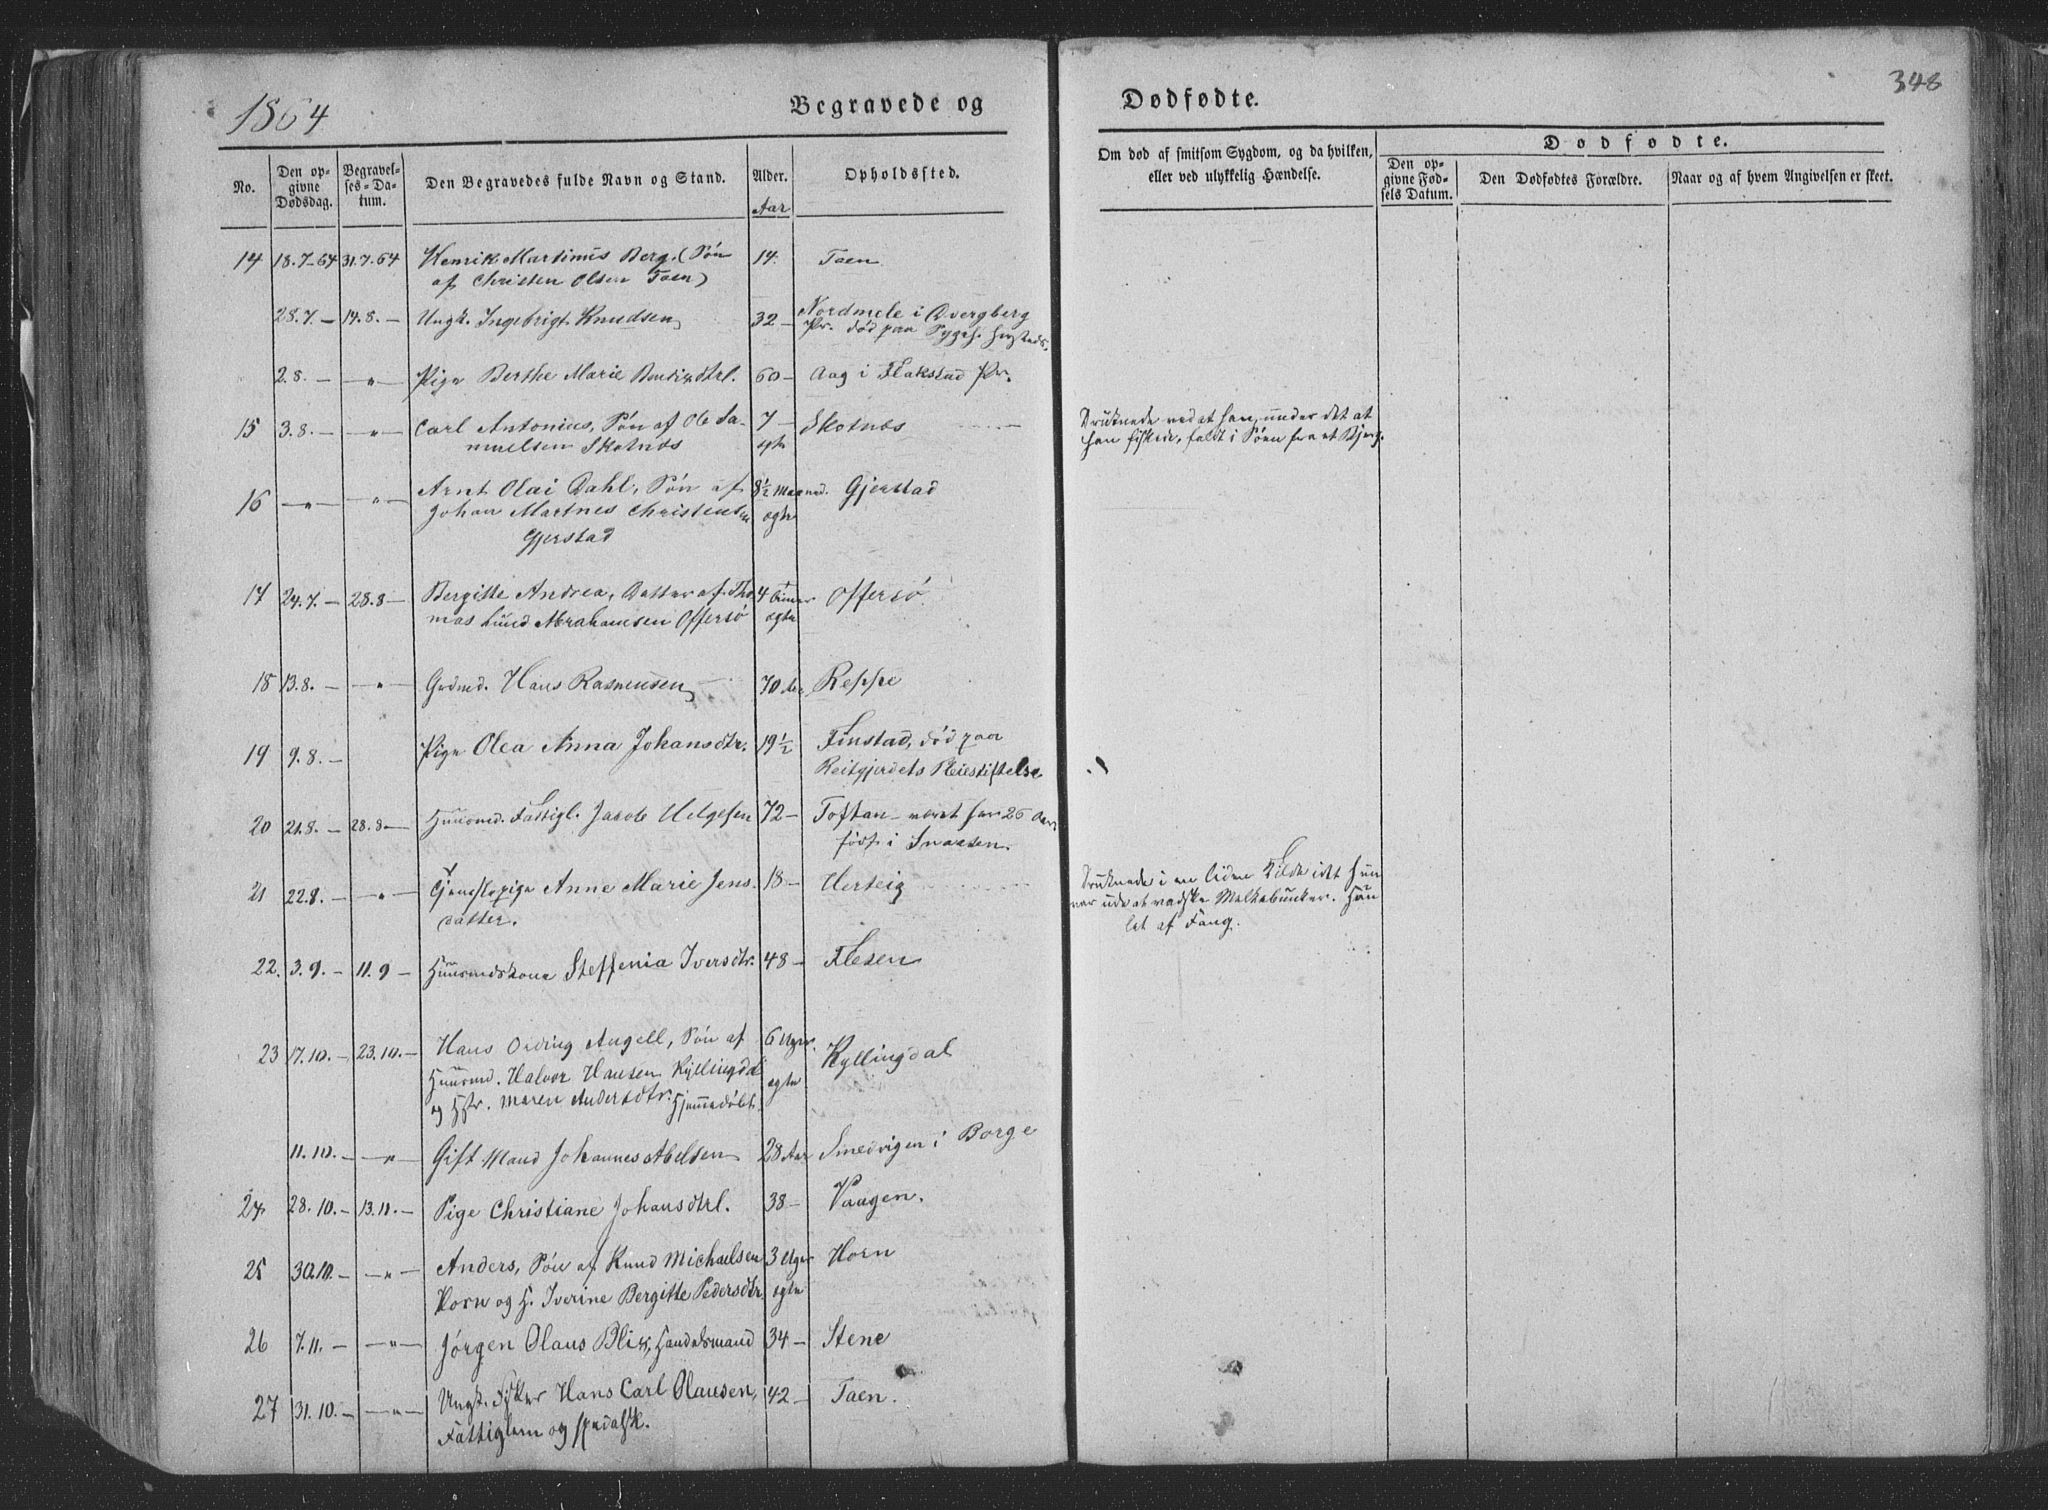 348
1864
Begravede og Dødfødte.
No. Den opgivne Dødsdag. Begravelses-Datum. Den Begravedes fulde Navn og Stand. Alder. Aar Opholdssted.
Om død af smitsom Sygdom, og da hvilken, eller ved ulykkelig Hændelse.
Dødfødte.
Den opgivne Fødsels Datum. Den Dødfødtes Forældre. Naar og af hvem Angivelsen er skeet.
14 18.7-64 31.7.64 Henrik Martinus Berg. (Søn 14. Taen
af Christen Olsen Taen)
28.7.— 14.8.— Ungk. Ingebrigt Knudsen 32— Nordmele i
Pr. død paa
2.8.— —"— Pige Berthe Marie 60— Aag i Flakstad Pr.
15 3.8.— —"— Carl Antonius, Søn af Ole Sa- 7— Skotnæs Druknede ved at han, under det at
muelsen Skotnæs ægte han fiskede, faldt i Søen fra et Bjerg.
16 —"— "— Arnt Olai Dahl, Søn af 8½ Maaned. Gjerstad
Johan Martnes Christensen ægte
Gjerstad
17 24.7.— 28.8— Bergitte Andrea, Datter af Tho 4 Offersö
mas Lund Abrahamsen Offersö ægte
18 13.8.— —"— Grdmd. Hans Rasmussen 70 Aar Reppe
19 9.8.— Pige Olea Anna Johansdtr. 19½ Finstad, død paa
Reitgjerdets Pleiestiftelse
20 21.8.— 28.8— Huusmd. Fattigl. Jacob Helgesen 72— Toftan — været her 26 Aar
født i Snaasen.
21 22.8.— —"— Tjenestepige Anne Marie Jens 18— Herteig Druknede i en liden Kilde idet hun
datter. var ude at vadske Melkebunker. Hun
let af Fang.
22. 3.9.— 11.9— Huusmdskone Steffenia Iversdtr. 48— Flesen
23 17.10.— 23.10.— Hans Ording Angell, Søn af 6 Uger. Kyllingdal
Huusmd. Halvor Hansen Kyllingdal ægte
og Hstr. Maren Andersdtr. Hjemmedøbt.
11.10.— —"— Gift Mand Johannes Abelsen 28 Aar Smedvigen i Borge
24 28.10.— 13.11.— Pige Christiane Johansdtr. 38— Vaagen.
25 30.10.— —"— Anders, Søn af Knud Michaelsen 3 Uger Horn
Horn og H. Iverine Bergitte Pedersdtr ægte
26 7.11.— —"— Jørgen Olaus Blix, Handelsmand 34— Stene
27 31.10.— —"— Ungk. Fisker Hans Carl Olausen, 42— Taen.
Fattiglem og spedalsk.